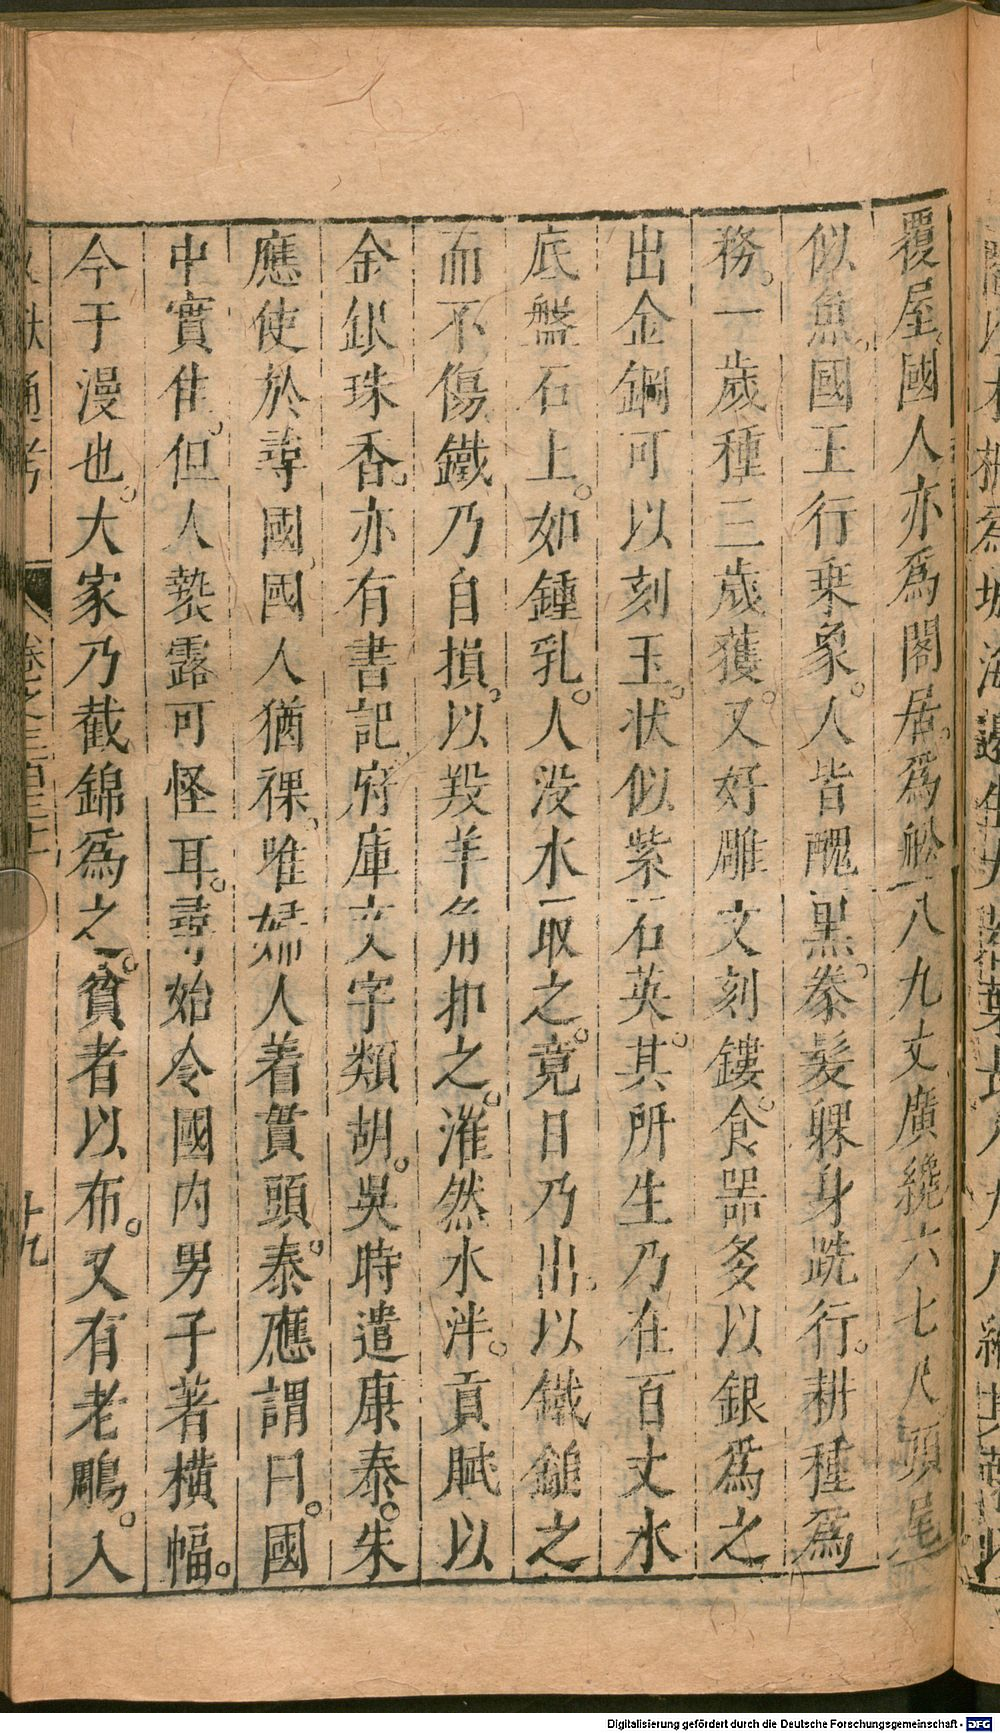 覆屋國人亦爲閣居爲舩八九丈廣纔六七尺頭尾
似魚國王行乗象人皆醜黒拳髮躶身跣行耕種爲
務一歲種三歲獲又好雕文刻鏤食器多以銀爲之
出金鋼可以刻玉状似紫石英其所生乃在百丈水
底盤石上如鍾乳人没水取之竟日乃出以鐵鎚之
而不傷鐵乃自損以羖羊角扣之漼然水泮貢賦以
金銀珠香亦有書記府庫文字類胡吳時遣康泰朱
應使於尋國國人猶裸唯婦人着貫頭泰應謂曰國
中實佳但人褻露可怪耳尋始令國内男子著橫幅
今于漫也大家乃截錦爲之貧者以布又有老鵰入
通考 卷之三百三十 十九
Digitalisierung gefördert durch die Deutsche Forschungsgemeinschaft - DFG